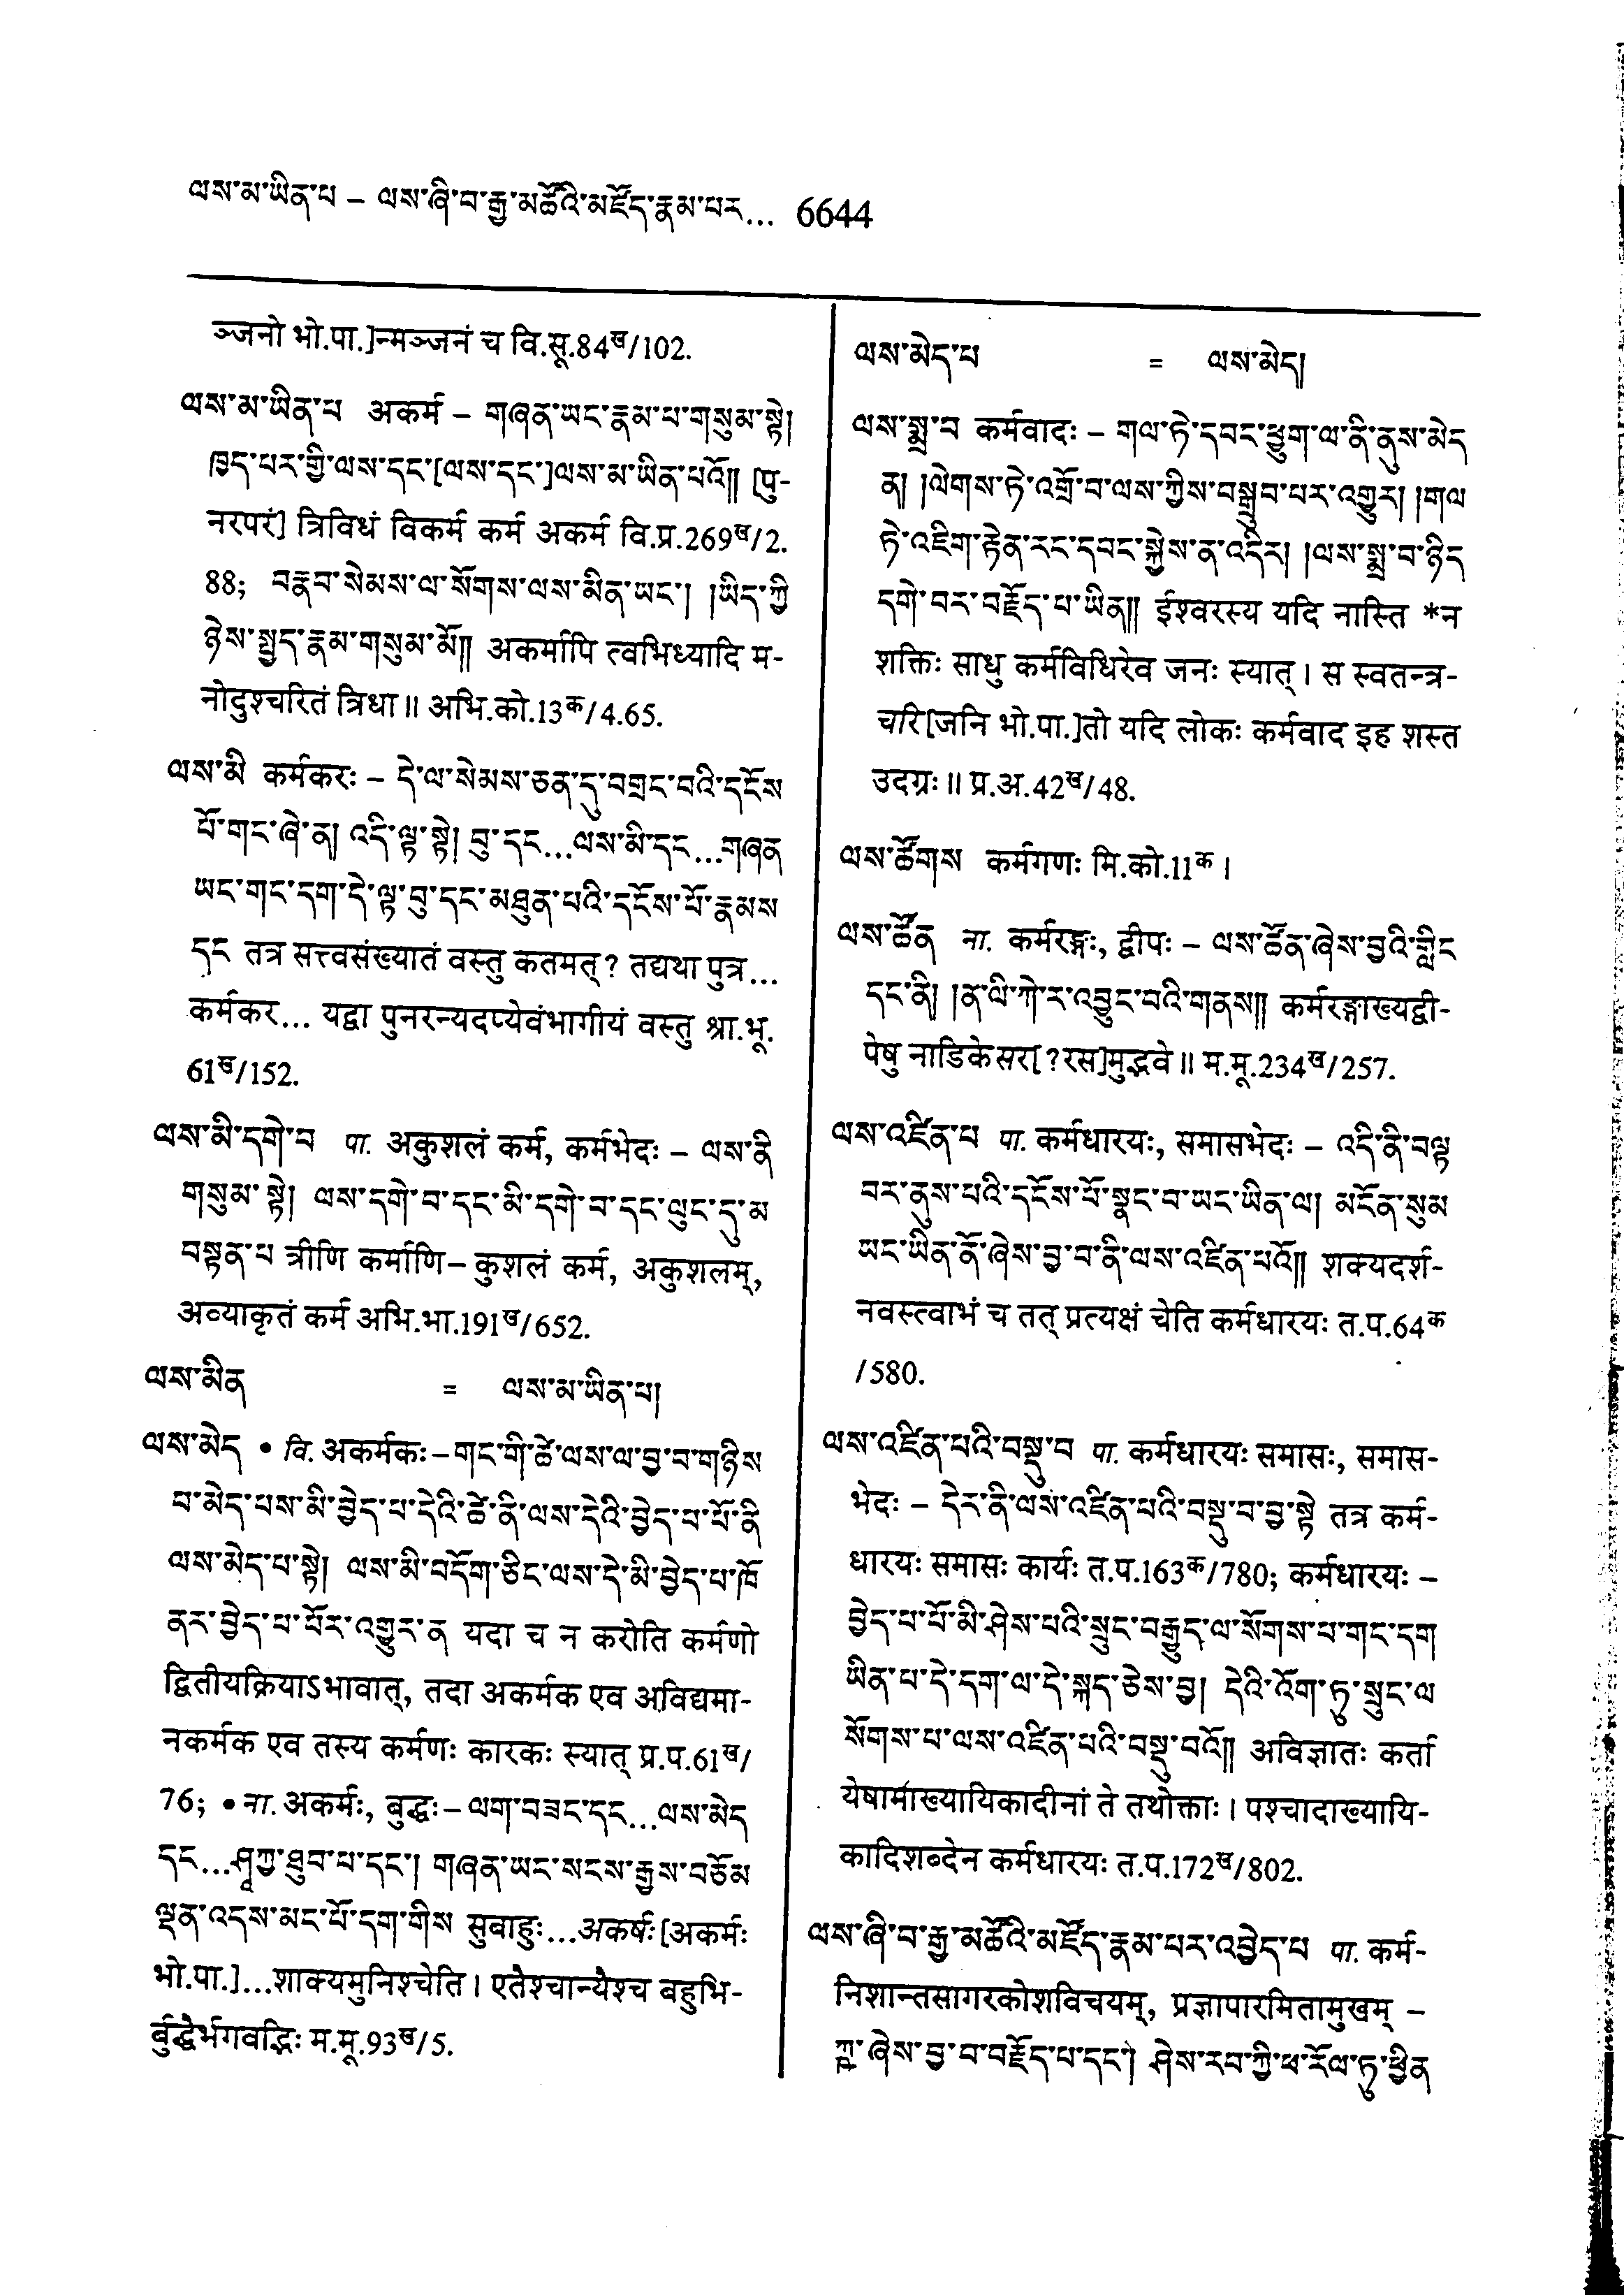 ལས་མ་ཡིན་པ – ལས་ཞི་བ་རྒྱ་མཚོའི་མཛོད་རྣམ་པར... 6644
ञ्जनो भो.पा.]न्मञ्जनं च वि.सू.84ख/102.
ལས་མ་ཡིན་པ अकर्म – གཞན་ཡང་རྣམ་པ་གསུམ་སྟེ།
ཁྱད་པར་གྱི་ལས་དང་[ལས་དང་]ལས་མ་ཡིན་པའོ།། [पु-
नरपरं] त्रिविधं विकर्म कर्म अकर्म वि.प्र.269ख/2.
88; བརྣབ་སེམས་ལ་སོགས་ལས་མིན་ཡང་། །ཡིད་ཀྱི
ཉེས་སྤྱད་རྣམ་གསུམ་མོ།། अकर्मापि त्वभिध्यादि म-
नोदुश्चरितं त्रिधा॥ अभि.को.13क/4.65.
ལས་མི कर्मकरः – དེ་ལ་སེམས་ཅན་དུ་བགྲང་བའི་དངོས
པོ་གང་ཞེ་ན། འདི་ལྟ་སྟེ། བུ་དང...ལས་མི་དང...གཞན
ཡང་གང་དག་དེ་ལྟ་བུ་དང་མཐུན་པའི་དངོས་པོ་རྣམས
དང तत्र सत्त्वसंख्यातं वस्तु कतमत्? तद्यथा पुत्र...
कर्मकर... यद्वा पुनरन्यदप्येवंभागीयं वस्तु श्रा.भू.
61ख/152.
ལས་མི་དགེ་བ पा. अकुशलं कर्म, कर्मभेदः – ལས་ནི
གསུམ་སྟེ། ལས་དགེ་བ་དང་མི་དགེ་བ་དང་ལུང་དུ་མ
བསྟན་པ त्रीणि कर्माणि– कुशलं कर्म, अकुशलम्,
अव्याकृतं कर्म अभि.भा.191ख/652.
ལས་མིན = ལས་མ་ཡིན་པ།
ལས་མེད • वि. अकर्मकः – གང་གི་ཚེ་ལས་ལ་བྱ་བ་གཉིས
པ་མེད་པས་མི་བྱེད་པ་དེའི་ཚེ་ནི་ལས་དེའི་བྱེད་པ་པོ་ནི
ལས་མེད་པ་སྟེ། ལས་མི་བདོག་ཅིང་ལས་དེ་མི་བྱེད་པ་ཁོ
ནར་བྱེད་པ་པོར་འགྱུར་ན यदा च न करोति कर्मणो
द्वितीयक्रियाऽभावात्, तदा अकर्मक एव अविद्यमा-
नकर्मक एव तस्य कर्मणः कारकः स्यात् प्र.प.61ख/
76; • ना. अकर्मः, बुद्धः – ལག་བཟང་དང...ལས་མེད
དང...ཤཱཀྱ་ཐུབ་པ་དང་། གཞན་ཡང་སངས་རྒྱས་བཅོམ
ལྡན་འདས་མང་པོ་དག་གིས सुबाहुः...अकर्षः[अकर्मः
भो.पा.]...शाक्यमुनिश्चेति। एतैश्चान्यैश्च बहुभि-
र्बुद्धैर्भगवद्भिः म.मू.93ख/5.
ལས་མེད་པ = ལས་མེད།
ལས་སྨྲ་བ कर्मवादः – གལ་ཏེ་དབང་ཕྱུག་ལ་ནི་ནུས་མེད
ན། །ལེགས་ཏེ་འགྲོ་བ་ལས་ཀྱིས་བསྒྲུབ་པར་འགྱུར། །གལ
ཏེ་འཇིག་རྟེན་རང་དབང་སྐྱེས་ན་འདིར། །ལས་སྨྲ་བ་ཉིད
དགེ་བར་བརྗོད་པ་ཡིན།། ईश्वरस्य यदि नास्ति *न
शक्तिः साधु कर्मविधिरेव जनः स्यात्। स स्वतन्त्र-
चरि[जनि भो.पा.]तो यदि लोकः कर्मवाद इह शस्त
उदग्रः॥ प्र.अ.42ख/48.
ལས་ཚོགས कर्मगणः मि.को.11क।
ལས་ཚོན ना. कर्मरङ्गः, द्वीपः – ལས་ཚོན་ཞེས་བྱའི་གླིང
དང་ནི། །ན་ལི་ཀེ་ར་འབྱུང་བའི་གནས།། कर्मरङ्गाख्यद्वी-
पेषु नाडिकेसर[?रस]मुद्भवे॥ म.मू.234ख/257.
ལས་འཛིན་པ पा. कर्मधारयः, समासभेदः – འདི་ནི་བལྟ
བར་ནུས་པའི་དངོས་པོ་སྣང་བ་ཡང་ཡིན་ལ། མངོན་སུམ
ཡང་ཡིན་ནོ་ཞེས་བྱ་བ་ནི་ལས་འཛིན་པའོ།། शक्यदर्श-
नवस्त्वाभं च तत् प्रत्यक्षं चेति कर्मधारयः त.प.64क
/580.
ལས་འཛིན་པའི་བསྡུ་བ पा. कर्मधारयः समासः, समास-
भेदः – དེར་ནི་ལས་འཛིན་པའི་བསྡུ་བ་བྱ་སྟེ तत्र कर्म-
धारयः समासः कार्यः त.प.163क/780; कर्मधारयः –
བྱེད་པ་པོ་མི་ཤེས་པའི་སྲུང་བརྒྱུད་ལ་སོགས་པ་གང་དག
ཡིན་པ་དེ་དག་ལ་དེ་སྐད་ཅེས་བྱ། དེའི་འོག་ཏུ་སྲུང་ལ
སོགས་པ་ལས་འཛིན་པའི་བསྡུ་བའོ།། अविज्ञातः कर्ता
येषामाख्यायिकादीनां ते तथोक्ताः। पश्चादाख्यायि-
कादिशब्देन कर्मधारयः त.प.172ख/802.
ལས་ཞི་བ་རྒྱ་མཚོའི་མཛོད་རྣམ་པར་འབྱེད་པ पा. कर्म-
निशान्तसागरकोशविचयम्, प्रज्ञापारमितामुखम् –
ཞེས་བྱ་བ་བརྗོད་པ་དང་། ཤེས་རབ་ཀྱི་ཕ་རོལ་ཏུ་ཕྱིན